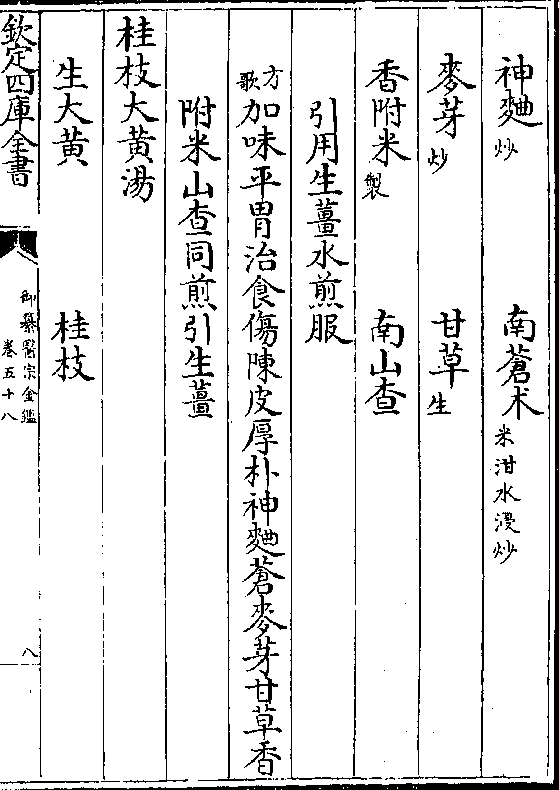 神麯炒 南蒼术米泔水浸炒
麥芽炒 甘草生
香附米製 南山查
引用生薑水煎服
方歌加味平胃治食傷陳皮厚朴神麯蒼麥芽甘草香
附米山查同煎引生薑
桂枝大黄湯
生大黄 桂枝
欽定四庫全書 御纂醫宗金鑑卷五十八 八